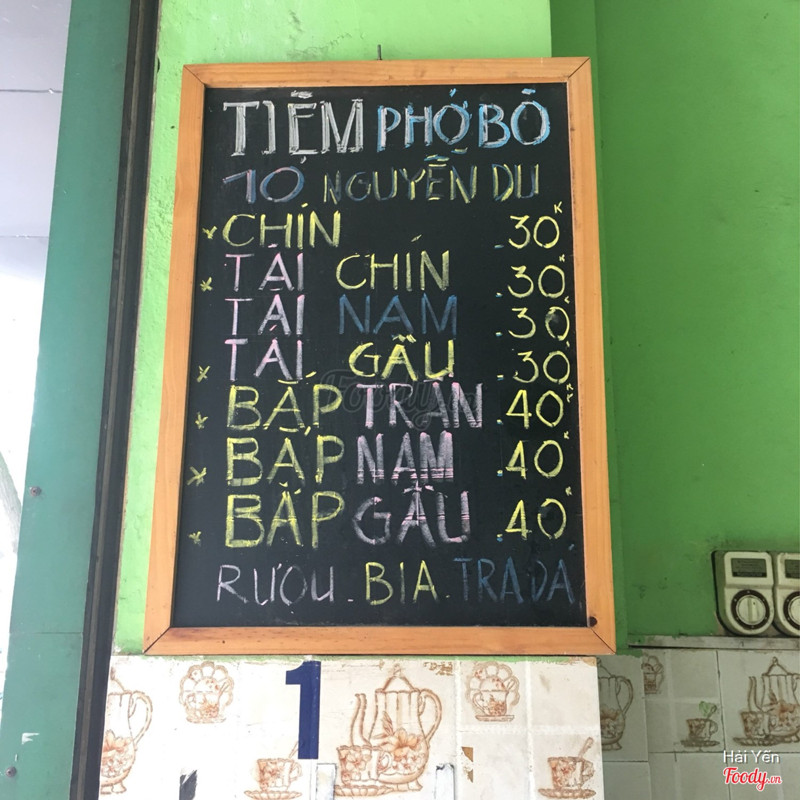 TIỆM PHỞ BÒ
10 NGUYỄN DU
CHÍN .30K
TÁI CHÍN .30K
TÁI NẠM .30K
TÁI GẦU .30K
BẮP TRẦN .40K
BẮP NẠM .40K
BẮP GẦU .40K
RƯỢU. BIA. TRÀ ĐÁ
1
Hải Yến
Foody.vn